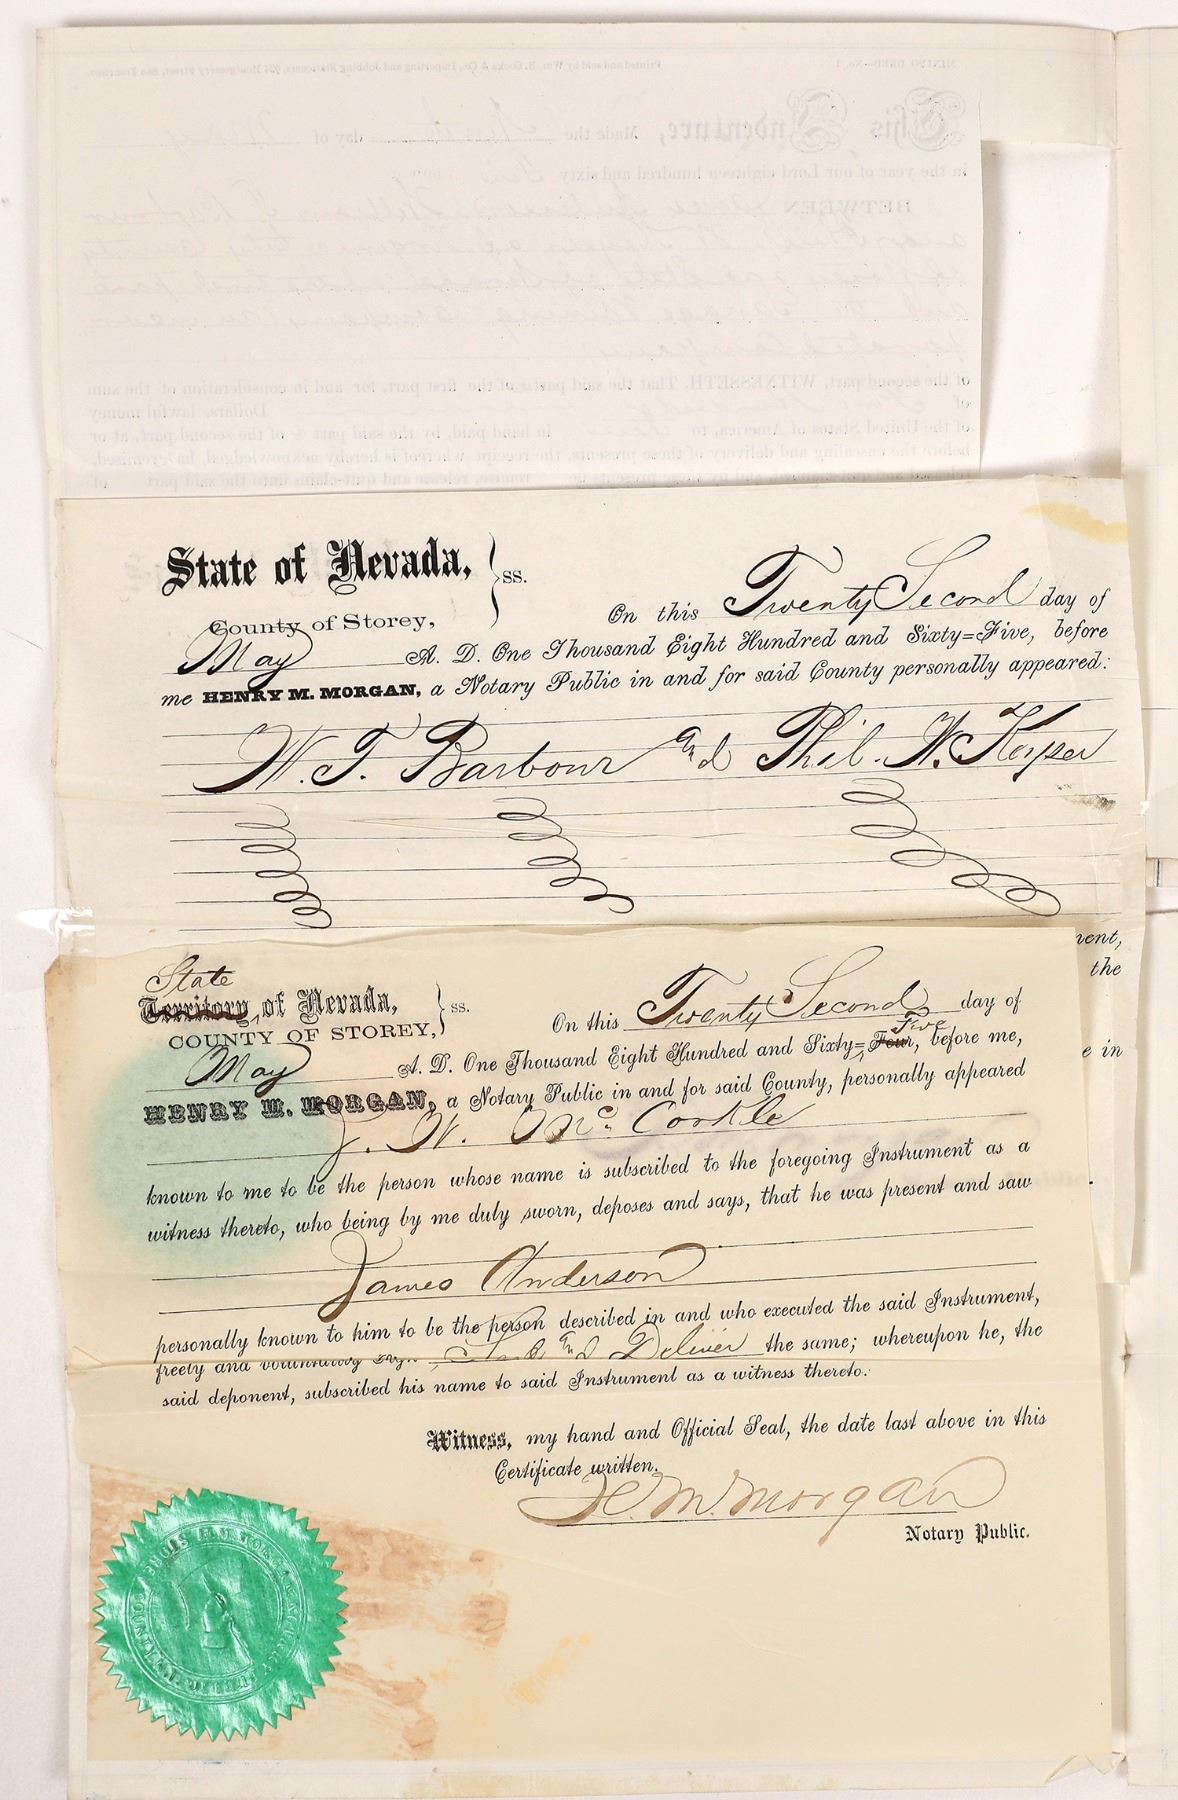 MINING DEED—No. 1. Printed and sold by Wm. B. Cooke & Co., Importing and Jobbing Stationers, 624 Montgomery Street, San Francisco.
This Indenture, Made the day of May
in the year of our Lord eighteen hundred and sixty five
BETWEEN James Anderson William T. Barbour
and Virginia City County
of Storey and State of Nevada of the first part
and the Savage Mining Company an incor
porated Company
of the second part, WITNESSETH, That the said parties of the first part, for and in consideration of the sum
of Dollars, lawful money
of the United States of America, to in hand paid, by the said part of the second part, at or
before the ensealing and delivery of these presents, the receipt whereof is hereby acknowledged, ha remised,
remise, release and quit-claim unto the said part of
State of Nevada, } ss.
County of Storey,
On this Twenty Second day of
May A. D. One Thousand Eight Hundred and Sixty=Five, before
me HENRY M. MORGAN, a Notary Public in and for said County personally appeared:
W. T. Barbour and Phil. W. Keyser
ment,
the
e in
State
Territory of Nevada, } ss.
COUNTY OF STOREY,
On this Twenty Second day of
Five
May A. D. One Thousand Eight Hundred and Sixty=Four, before me,
HENRY M. MORGAN, a Notary Public in and for said County, personally appeared
J. W. McCorkle
known to me to be the person whose name is subscribed to the foregoing Instrument as a
witness thereto, who being by me duly sworn, deposes and says, that he was present and saw
James Anderson
personally known to him to be the person described in and who executed the said Instrument,
freely and voluntarily sign and Deliver the same; whereupon he, the
said deponent, subscribed his name to said Instrument as a witness thereto.
Witness, my hand and Official Seal, the date last above in this
Certificate written.
H. M. Morgan
Notary Public.